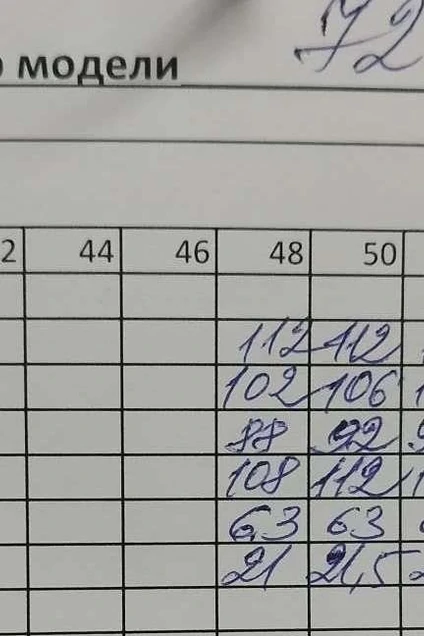 72
модели
2 44 46 48 50
112 112
102 106
88 92
108 112
63 63
21 21,5